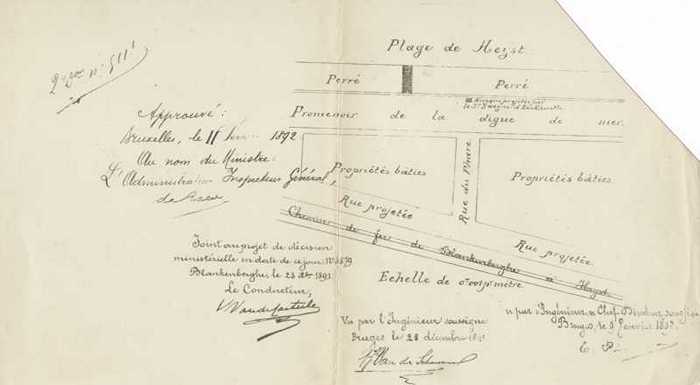 Plage de Heyst.
Perré
Perré
Promenoir de la digue de mer.
Approuvé:
Bruxelles, le 11 1892
Au nom du Ministre:
L'Administrateur Inspecteur Général,
Propriétés bâties
Rue du Phare
Propriétés bâties.
Rue projetée
Rue projetée
Chemin de fer de Blankenberghe à Heyst
Echelle de 0.001 p. mètre
Joint au projet de décision
ministérielle en date de ce jour N°
Blankenberghe, le 23 1891
Le Conducteur,
Vu par l'Ingénieur soussigné
Bruges, le 28 décembre
par l'Ingénieur en Chef Directeur soussigné
Bruges, le Janvier